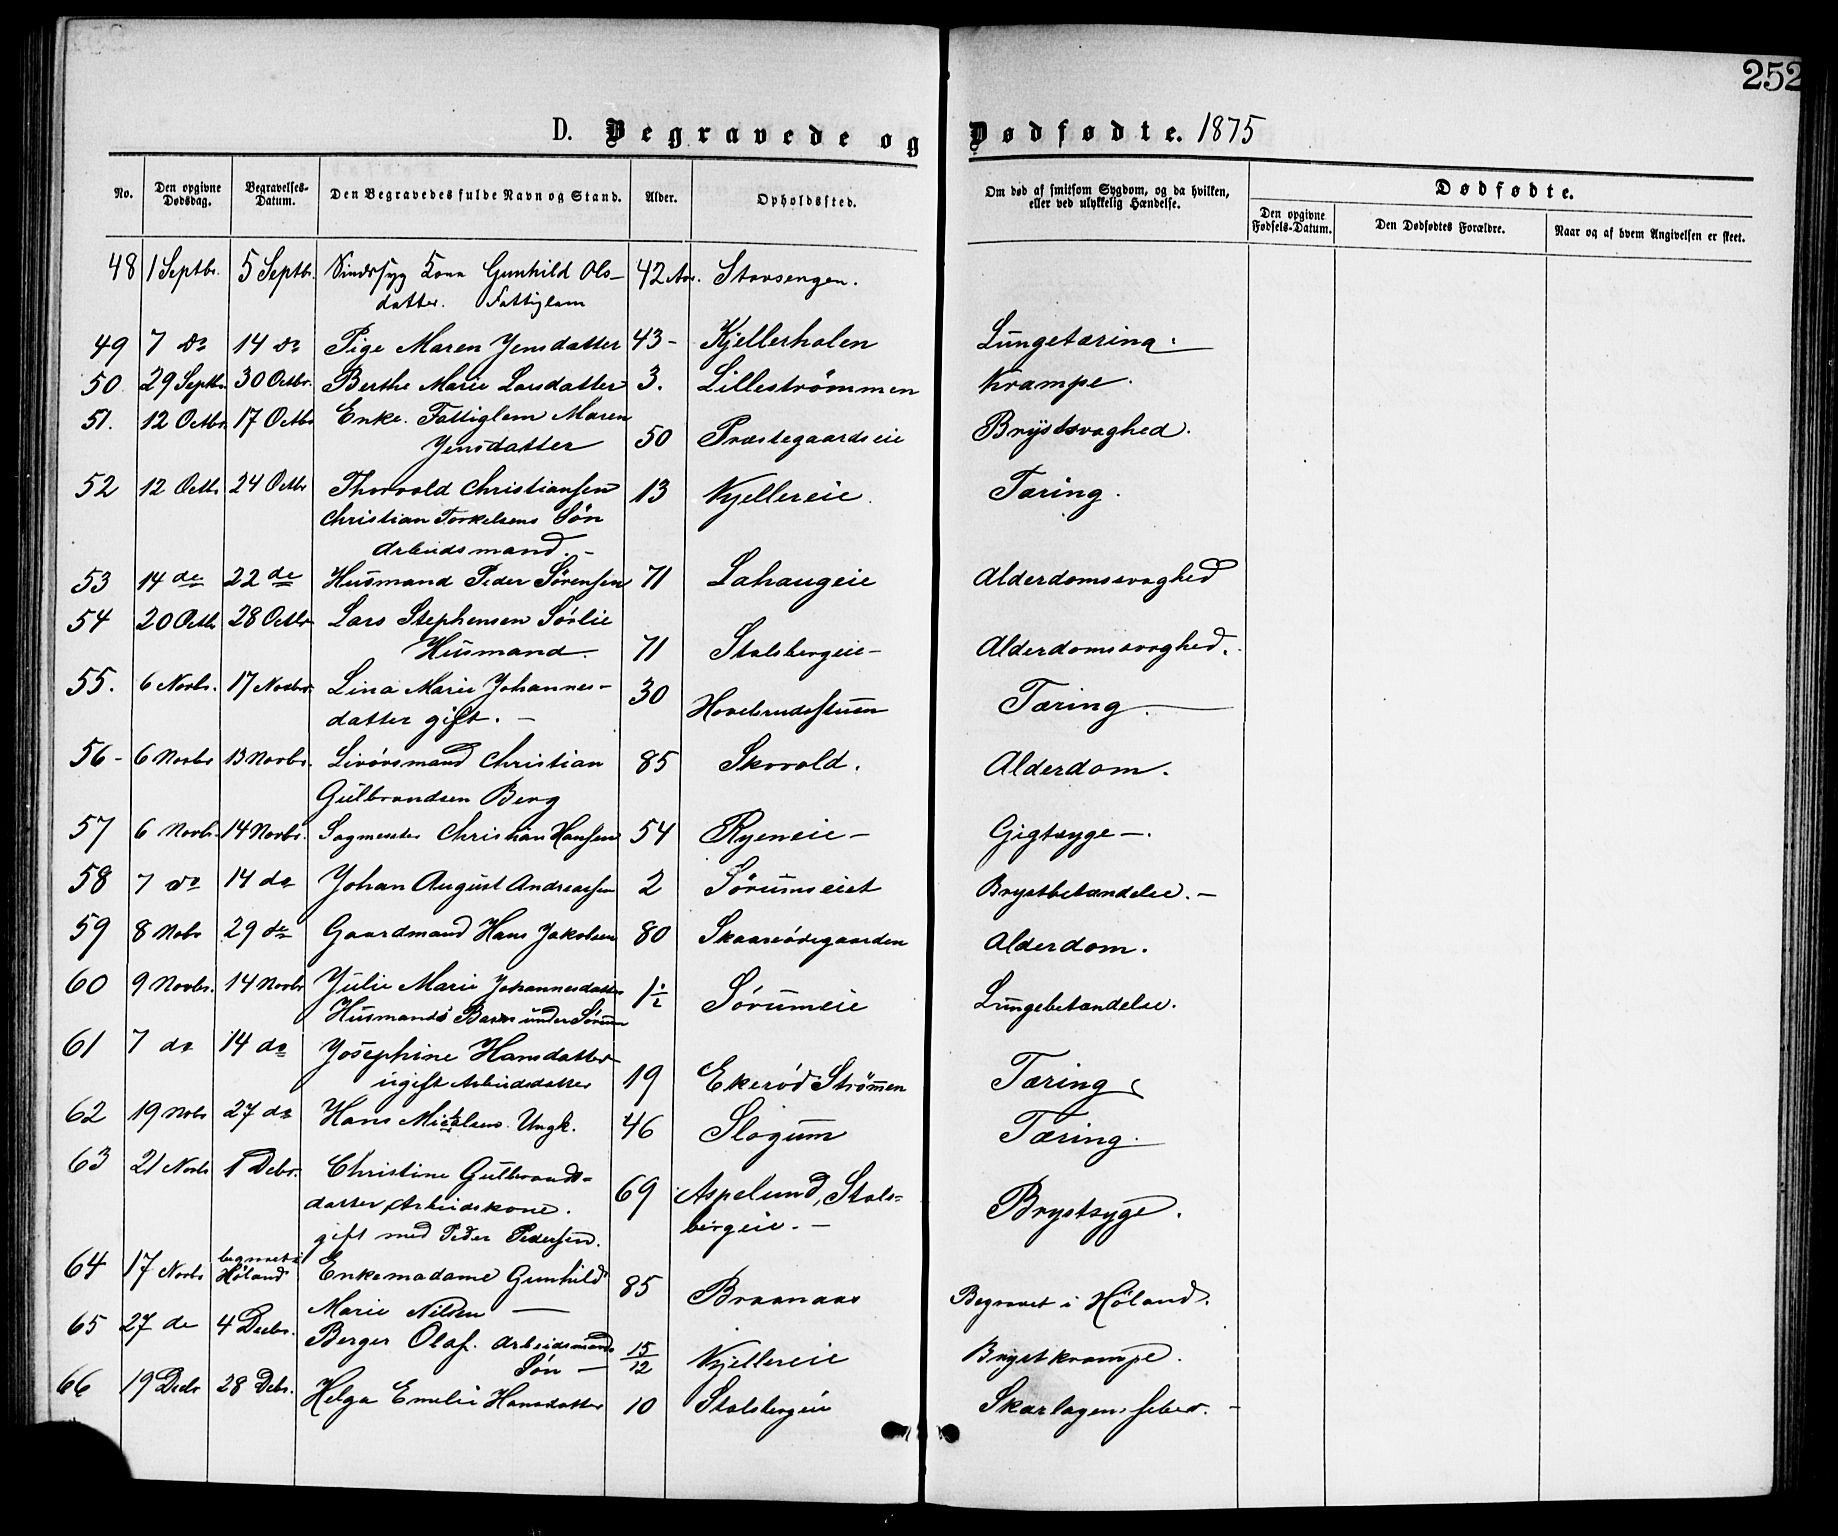 252
D. Begravede og Dødfødte. 1875
No. Den opgivne Dødsdag. Begravelses-Datum. Den Begravedes fulde Navn og Stand. Alder. Opholdssted. Om død af smitsom Sygdom, og da hvilken, eller ved ulykkelig Hændelse. Dødfødte.
Den opgivne Fødsels-Datum. Den Dødfødtes Forældre. Naar og af hvem Angivelsen er skeet.
48 1 Septbr. 5 Septbr. Sindssyg Kone Gunhild Ols- 42 Aar. Storsengen.
datter. Fattiglem
49 7 do 14 do Pige Maren Jensdatter 43 - Kjellerholen Lungetæring.
50 29 Septbr 30 Octbr. Berthe Marie Larsdatter 3. Lillestrømmen Krampe.
51. 12 Octbr 17 Octbr Enke. Fattiglem Maren
Jensdatter 50 Præstegaardseie Brystsvaghed.
52 12 Octbr 24 Octbr Thorvald Christiansen 13 Kjellereie. Tæring.
Christian Torkelsens Søn
Arbeidsmand. -
53 14 de 22 de Husmand Peder Sørensen 71 Lahaugeie Alderdomssvaghed
54 20 Octbr 28 Octbr Lars Stephensen Sørlie
Husmand. 71 Stalsbergeie - Alderdomssvaghed.
55. 6 Novbr. 17 Novbr. Lina Marie Johannes- 30 Tæring.
datter gift. -
56 - 6 Novbr 13 Novbr. Christian 85 Skovold. Alderdom.
Gulbrandsen Berg
57 6 Novbr. 14 Novbr. Sagmester Christian Hansen 54 Ryeneie - Gigtsyge -.
58 7 do 14 do Johan August Andreassen 2 Sørumseiet Brystbetændelse. -
59 8 Nobr 29 de Gaardmand Hans Jakobsen 80 Skaarsødegaarden Alderdom.
60 9 Novbr. 14 Novbr Julie Marie Johannesdatter 1½ Sørumeie Lungebetændelse.
Husmands Barn under Sørum
61 7 do 14 do Josephine Hansdatter
ugift Arbeidsdatter 19 Ekerød Strømmen Tæring
62 19 Nobr 27 do Hans Mickelsens Ungk. 46 Slogum Tæring.
63 21 Novbr 1 Debr. Christine Gulbrands- 69 Aspelund, Stals-
datter, Arbeidskone. bergeie. - Brystsyge.
gift med Peder Pedersen.
64 17 Novbr begravet i Høland Enkemadame Gunhild 85 Braanaas Begravet i Høland.
Marie Nilsen -
65 27 de 4 Decbr. Berger Olaf. Arbeidsmands 15/12 Kjellereie Brystkrampe.
Søn -
66 19 Decbr 28 Debr. Helga Emelie Hansdatter 10 Stalsbergeie Skarlagensfeber. -